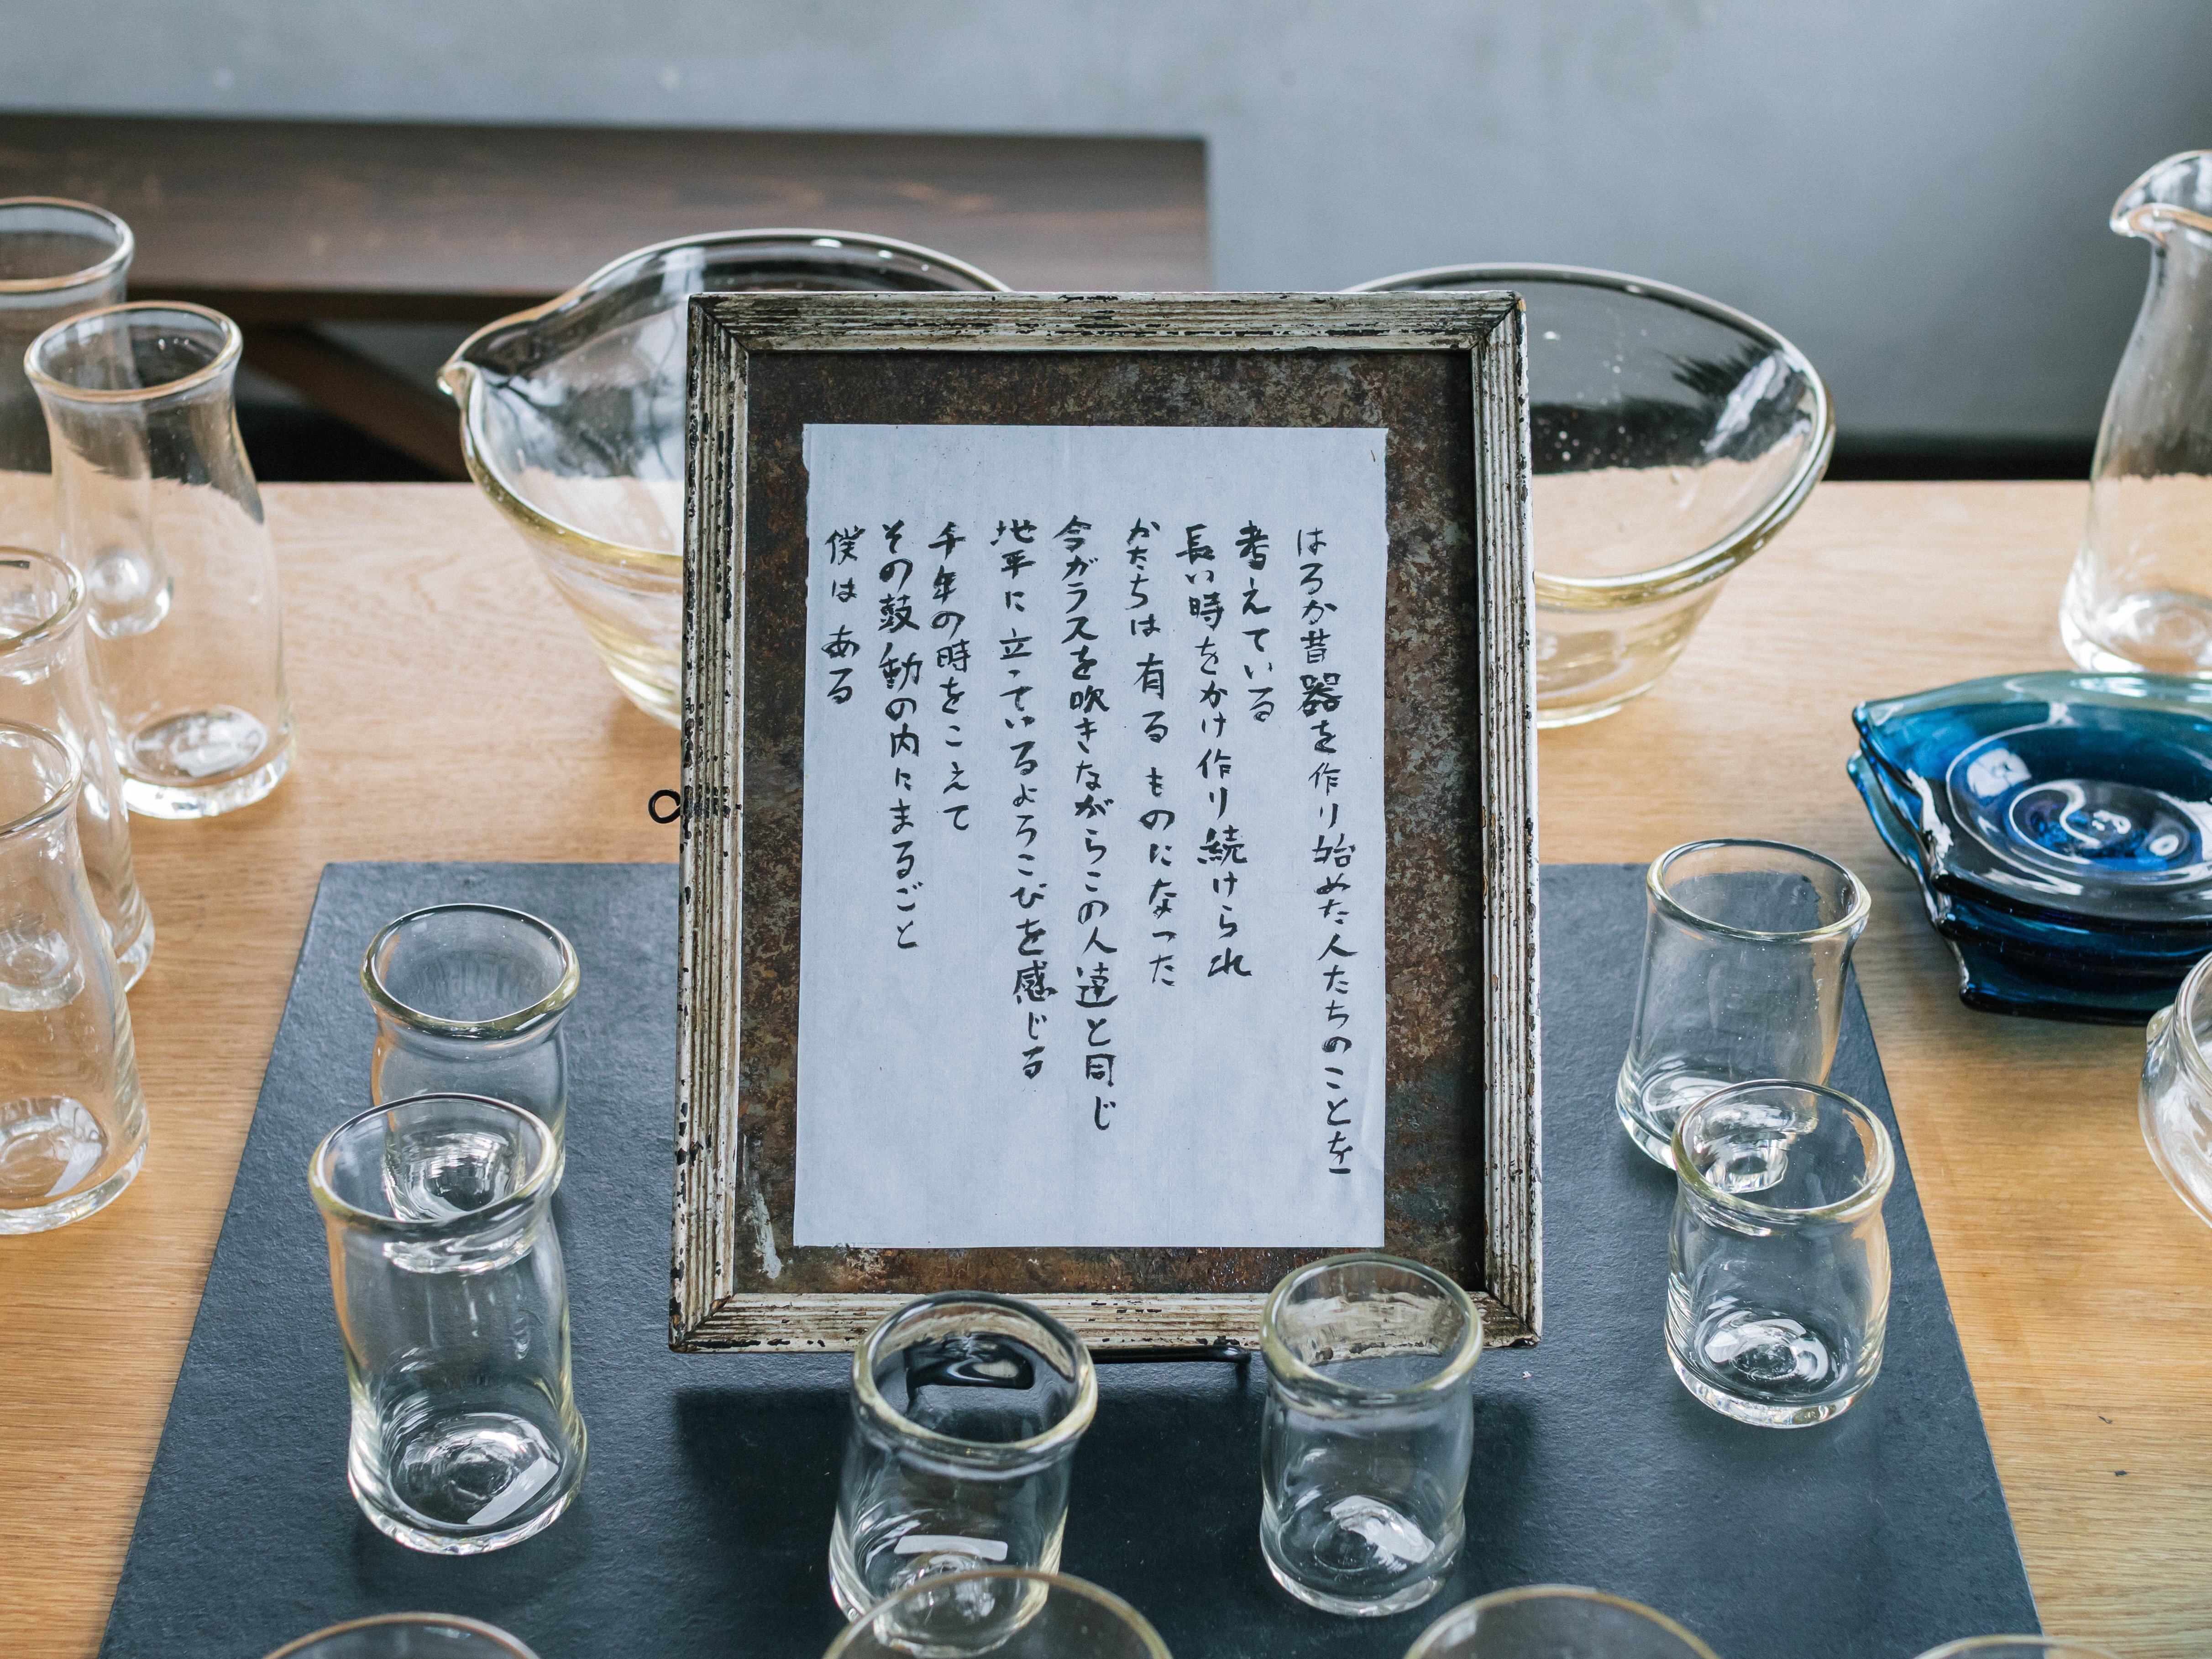 はるか昔器を作り始めた人たちのことを
考えている
長い時をかけ作り続けられ
かたちは有るものになった
今ガラスを吹きながらこの人達と同じ
地平に立っているよろこびを感じる
千年の時をこえて
その鼓動の内にまるごと
僕はある